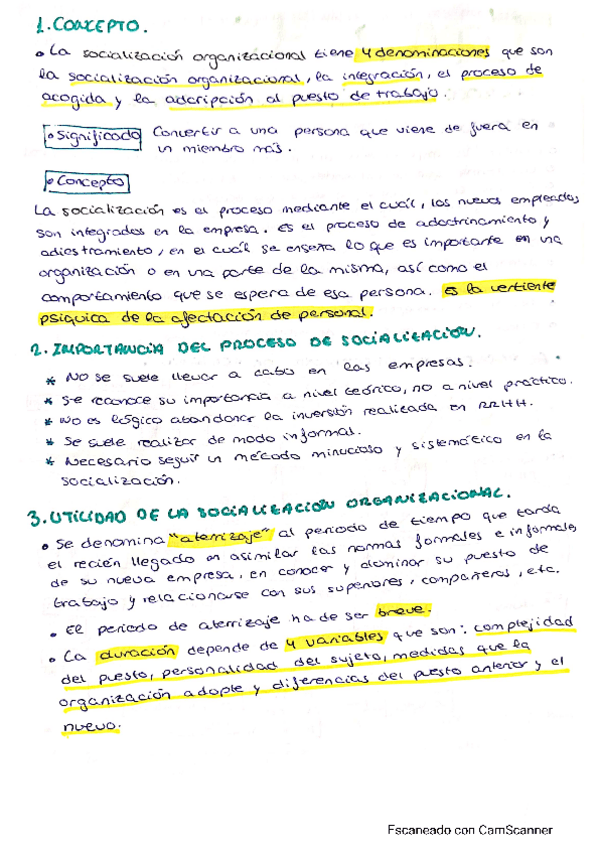 1. CONCEPTO.
• La socialización organizacional tiene 4 denominaciones que son
la socialización organizacional, la integración, el proceso de
acogida y la adscripción al puesto de trabajo.
• Significado Convertir a una persona que viene de fuera en
un miembro más.
• Concepto
La socialización es el proceso mediante el cuál, los nuevos empleados
son integrados en la empresa. es el proceso de adoctrinamiento y
adiestramiento, en el cuál se enseña lo que es importante en una
organización o en una parte de la misma, así como el
comportamiento que se espera de esa persona. es la vertiente
psíquica de la afectación de personal.
2. IMPORTANCIA DEL PROCESO DE SOCIALIZACIÓN.
* No se suele llevar a cabo en las empresas.
* Se reconoce su importancia a nivel teórico, no a nivel práctico.
* No es lógico abandonar la inversión realizada en RRHH.
* Se suele realizar de modo informal.
* Necesario seguir un método minucioso y sistemático en la
socialización.
3. UTILIDAD DE LA SOCIALIZACIÓN ORGANIZACIONAL.
• Se denomina "aterrizaje" al periodo de tiempo que tarda
el recién llegado en asimilar las normas formales e informales
de su nueva empresa, en conocer y dominar su puesto de
trabajo y relacionarse con sus superiores, compañeros, etc.
• El periodo de aterrizaje ha de ser breve.
• La duración depende de 4 variables que son: complejidad
del puesto, personalidad del sujeto, medidas que la
organización adopte y diferencias del puesto anterior y el
nuevo.
Escaneado con CamScanner